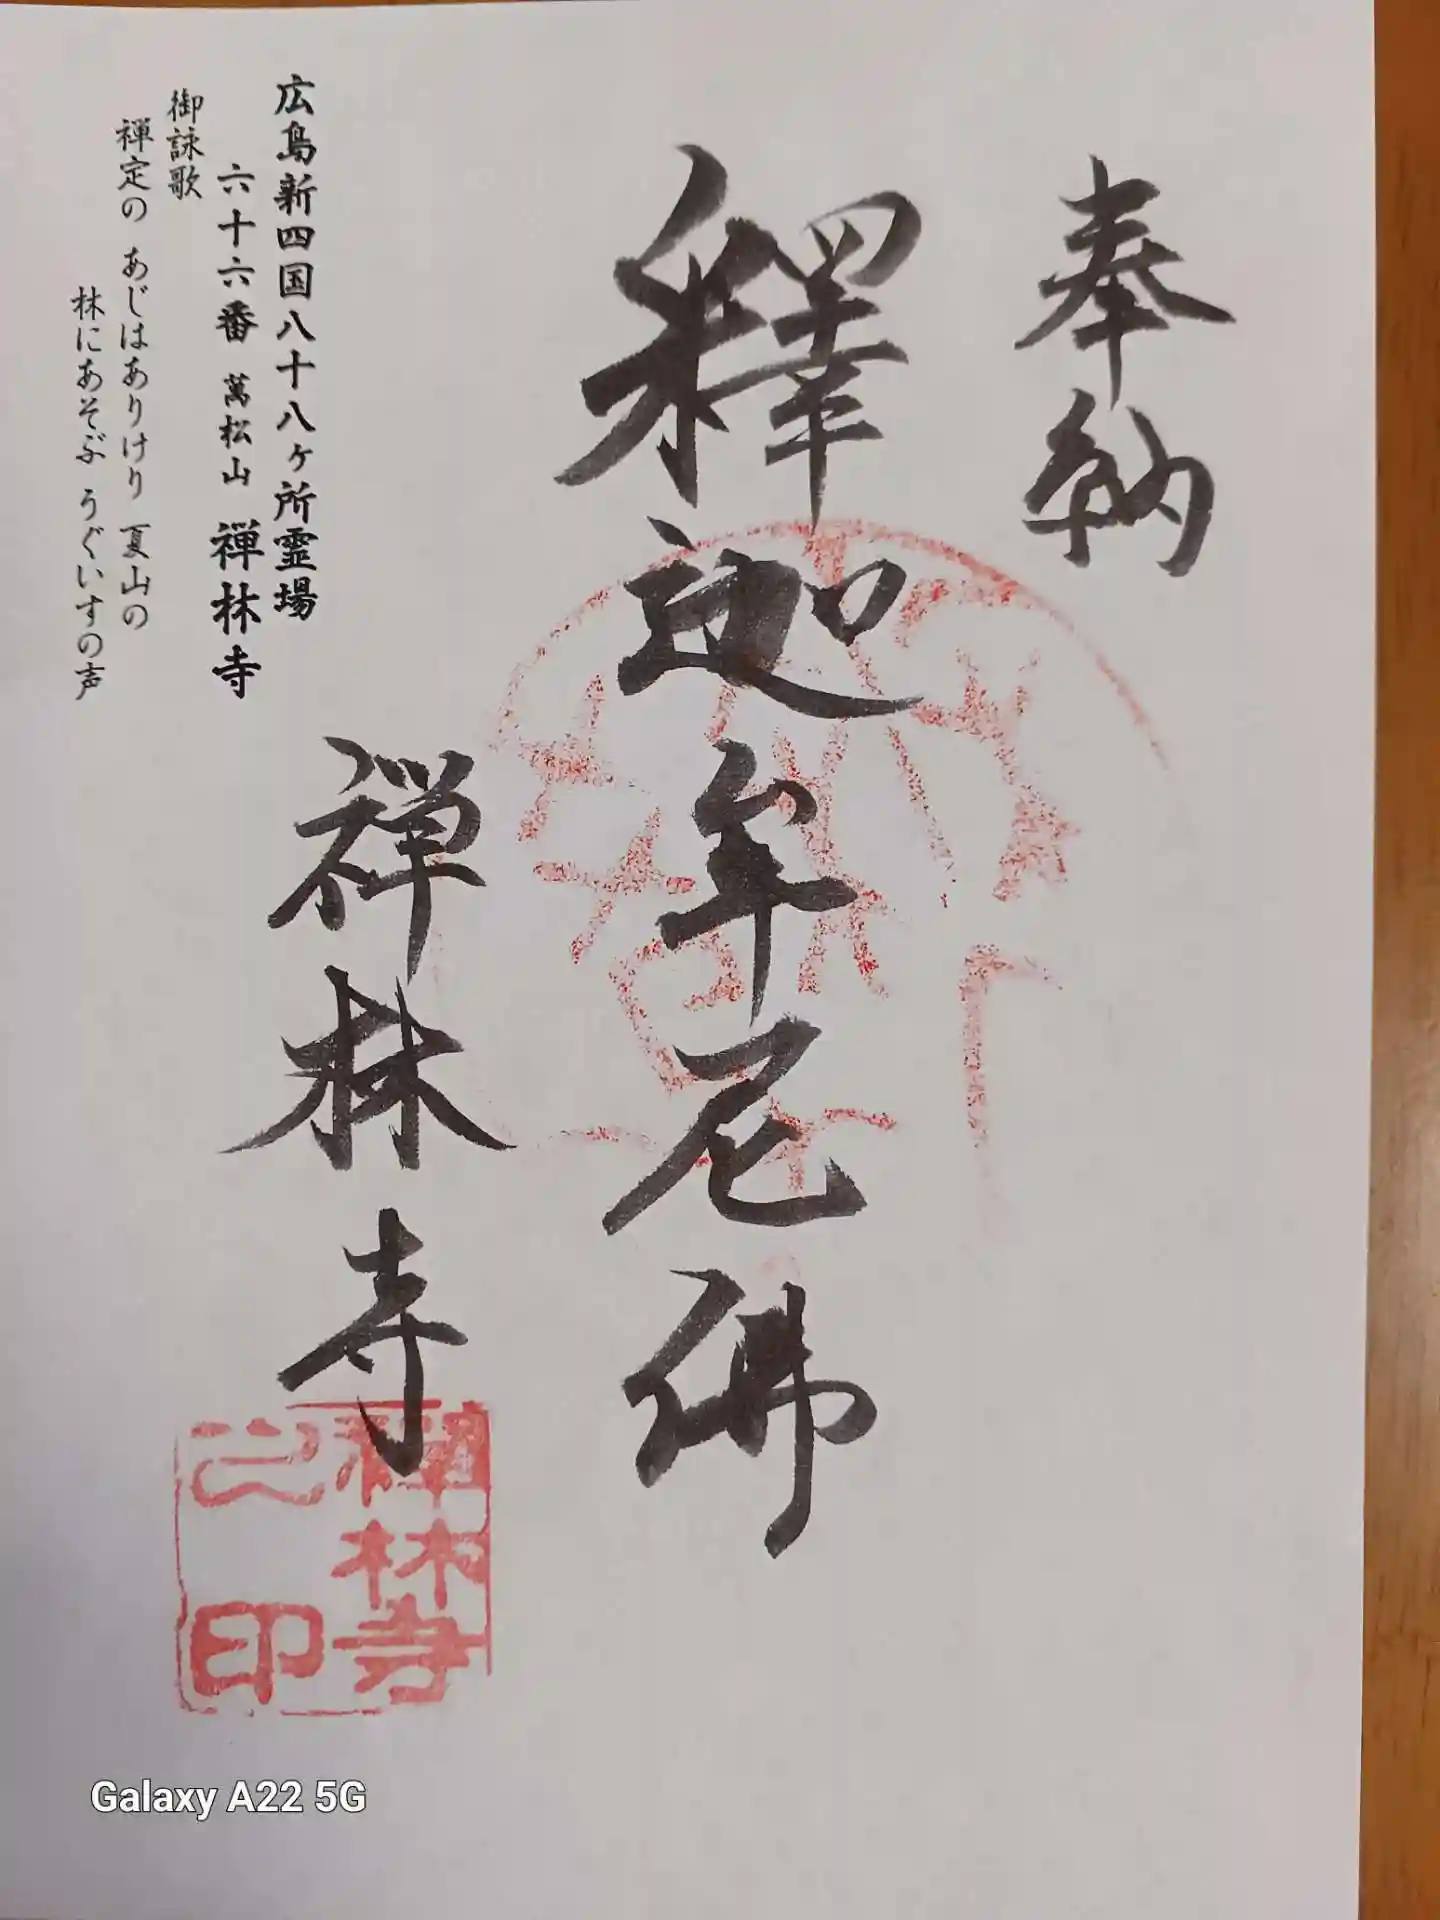 奉納
釋迦牟尼佛
禅林寺
広島新四国八十八ヶ所霊場
六十六番 萬松山 禅林寺
御詠歌
禅定の あじはありけり 夏山の
林にあそぶ うぐいすの声
禅林寺
之印
Galaxy A22 5G